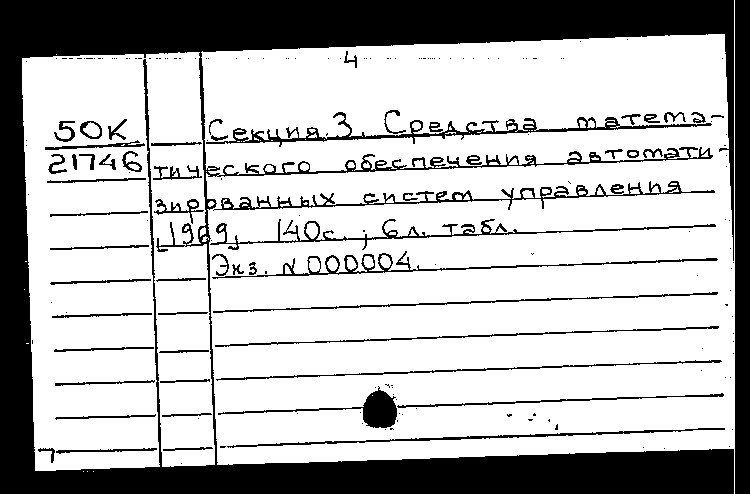 4
50К Секция 3. Средства матема-
21746 тического обеспечения автомати-
зированных систем управления
[1969] 140с.; 6л. табл.
Экз. N000004.